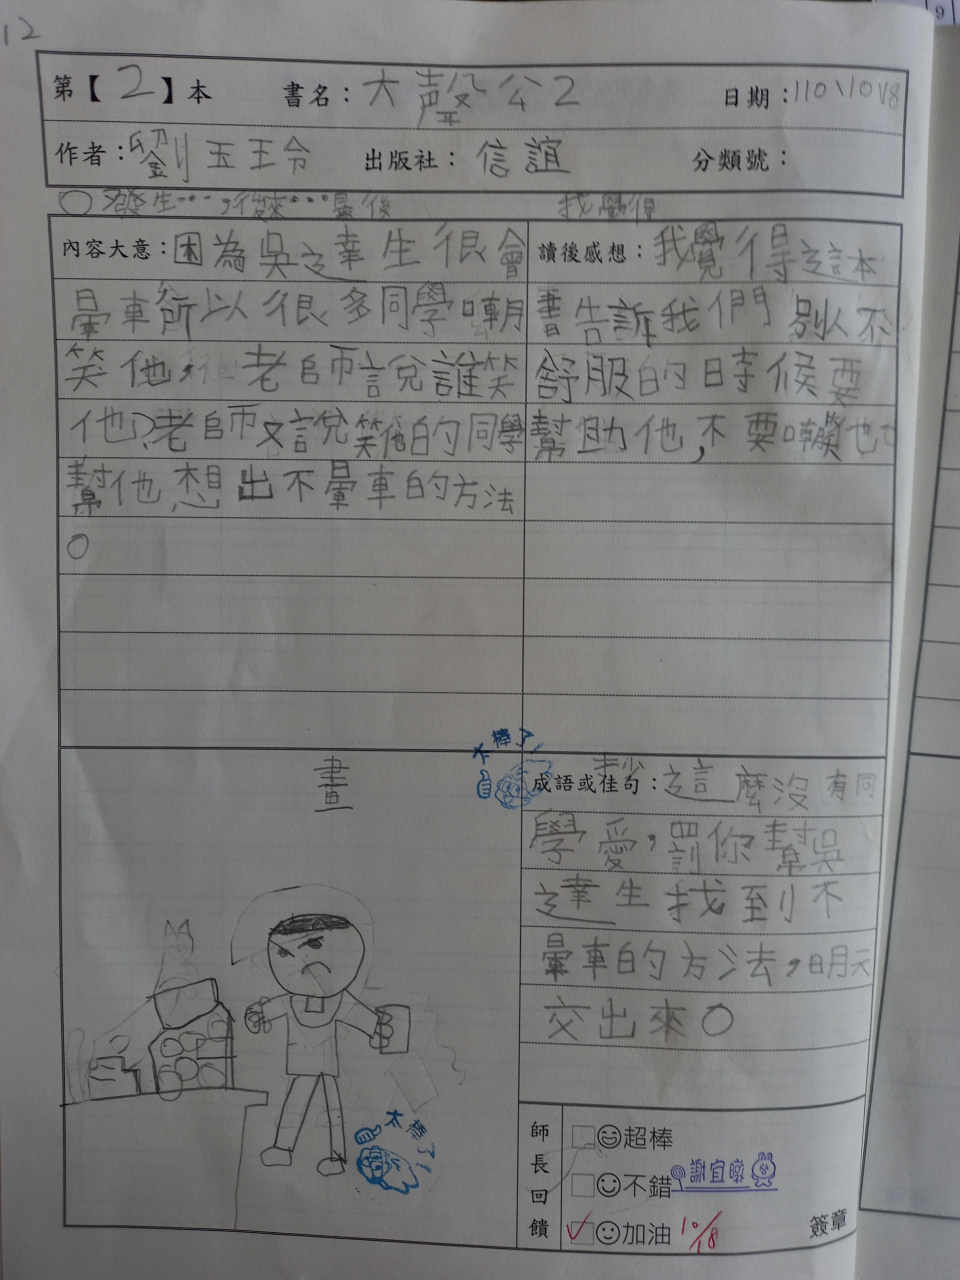 12
9
第【2】本 書名:大聲公2 日期:110\10\18
作者:劉玉玲 出版社:信誼 分類號:
○發生…,後來…最後 我覺得
內容大意:因為吳達生很會
暈車所以很多同學嘲
笑他,老師說誰笑
他?老師又說笑他的同學
幫他想出不暈車的方法
。
讀後感想:我覺得這本
書告訴我們別人不
舒服的時候要
幫助他,不要嘲笑他。
畫
太棒了!
成語或佳句:這麼沒有同
學愛,罰你幫吳
達生找到不
暈車的方法,明天
交出來。
太棒了!
師長回饋
超棒
不錯
加油 10/18
簽章